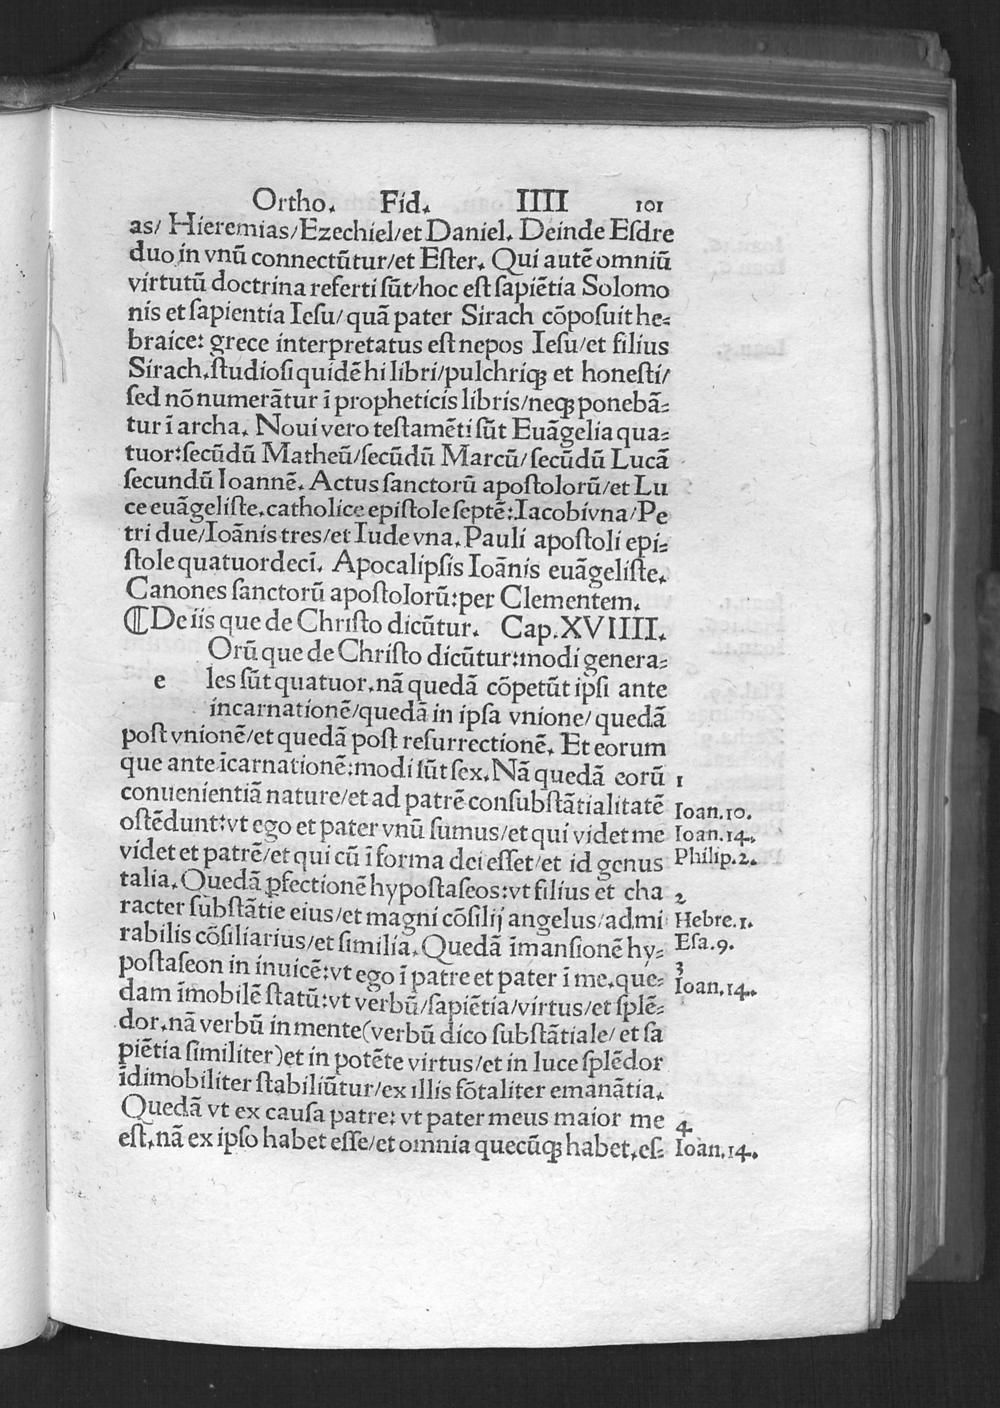 Ortho. Fid. IIII 101
as/ Hieremias/Ezechiel/et Daniel. Deinde Eſdre
duo in vnū connectūtur/et Eſter. Qui autē omniū
virtutū doctrina referti ſūt/hoc eſt ſapiētia Solomo
nis et ſapientia Ieſu/ quā pater Sirach cōpoſuit he⸗
braice: grece interpretatus eſt nepos Ieſu/et filius
Sirach.ſtudioſi quidē hi libri/pulchriqꝫ et honeſti/
ſed nō numerātur ī propheticis libris/neqꝫ ponebā⸗
tur ī archa. Noui vero teſtamēti ſūt Euāgelia qua⸗
tuor:ſecūdū Matheū/ſecūdū Marcū/ſecūdū Lucā
ſecundū Ioannē. Actus ſanctorū apoſtolorū/et Lu
ce euāgeliſte.catholice epiſtole ſeptē:Iacobi vna/Pe
tri due/Ioānis tres/et Iude vna.Pauli apoſtoli epi⸗
ſtole quatuordecī. Apocalipſis Ioānis euāgeliſte.
Canones ſanctorū apoſtolorū:per Clementem.
¶De iis que de Chriſto dicūtur. Cap.XVIIII.
Orū que de Chriſto dicūtur:modi genera⸗
e les ſūt quatuor.nā quedā cōpetūt ipſi ante
incarnationē/quedā in ipſa vnione/quedā
poſt vnionē/et quedā poſt reſurrectionē. Et eorum
que ante īcarnationē:modi ſūt ſex.Nā quedā eorū 1
conuenientiā nature/et ad patrē conſubſtātialitatē Ioan.10.
oſtēdunt:vt ego et pater vnū ſumus/et qui videt me Ioan.14.
videt et patrē/et qui cū ī forma dei eſſet/et id genus Philip.2.
talia.Quedā ꝑfectionē hypoſtaſeos:vt filius et cha 2
racter ſubſtātie eius/et magni cōſilij angelus/admi Hebre.1.
rabilis cōſiliarius/et ſimilia.Quedā īmanſionē hy⸗ Eſa.9.
poſtaſeon in inuicē:vt ego ī patre et pater ī me.que⸗ 3 Ioan.14.
dam īmobilē ſtatū:vt verbū/ſapiētia/virtus/et ſplē⸗
dor.nā verbū in mente(verbū dico ſubſtātiale/et ſa
piētia ſimiliter)et in potēte virtus/et in luce ſplēdor
īdimobiliter ſtabiliūtur/ex illis fōtaliter emanātia.
Quedā vt ex cauſa patre: vt pater meus maior me 4
eſt.nā ex ipſo habet eſſe/et omnia quecūqꝫ habet.eſ⸗ Ioan.14.